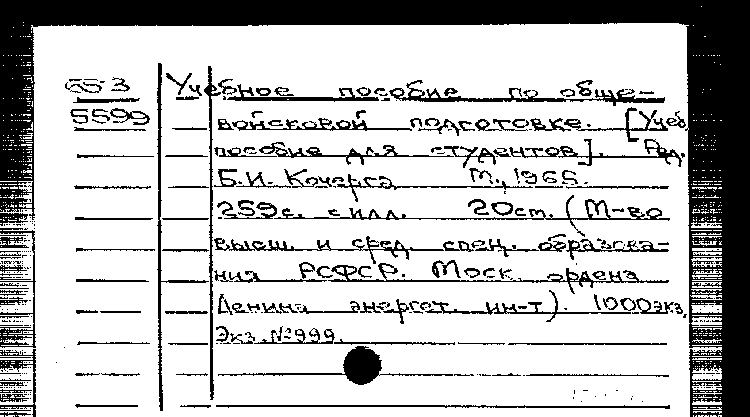 65-3
5599
Учебное пособие по обще-
войсковой подготовке. [Учеб.
пособие для студентов]. Ред.
Б.И. Кочерга М., 1965.
259с. с илл. 20см. (М-во
высш. и сред. спец. образова-
ния РСФСР. Моск. ордена
Ленина энергет. ин-т). 1000экз.
Экз. №999.